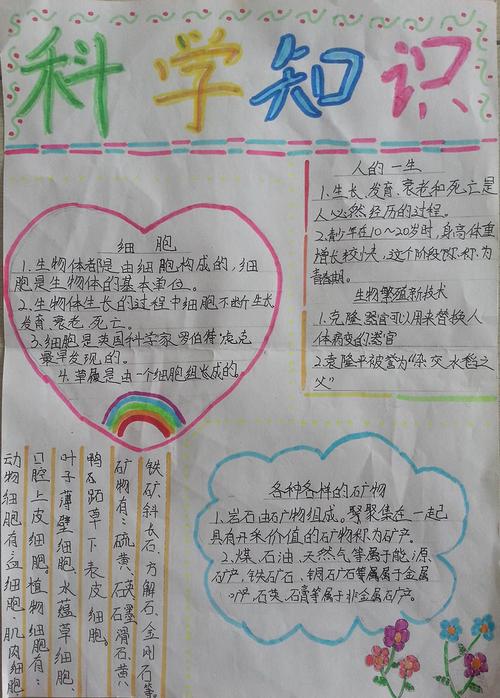 科学知识
细胞
1.生物体都是由细胞构成的,细
胞是生物体的基本单位。
2.生物体生长的过程中细胞不断生长
发育、衰老、死亡。
3.细胞是英国科学家罗伯特·虎克
最早发现的。
4.草履是由一个细胞组长成的。
人的一生
1.生长、发育、衰老和死亡是
人必然经历的过程。
2.青少年在10~20岁时,身高体重
增长较快,这个阶段称称为
青春期。
生物繁殖新技术
1.克隆器官可以用来替换人
体病变的器官
2.袁隆平被誉为“杂交水稻之
父”
动物细胞有:血细胞、肌肉细胞
口腔上皮细胞。植物细胞有:
叶子薄壁细胞、水蕴草细胞、
鸭跖草下表皮细胞。
矿物有:硫黄、石英石墨滑石、黄
铁矿、斜长石、方解石、金刚石等。
各种各样的矿物
1.岩石由矿物组成。聚聚集在一起
具有开采价值的矿物称为矿产。
2.煤、石油、天然气等属于能源
矿产,铁矿石、铜矿石等属属于金属
矿产石英、石膏等属于非金属矿产。